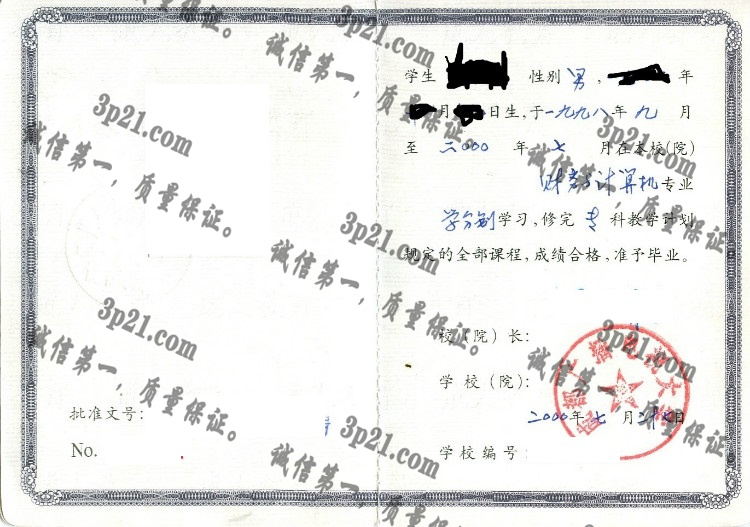 学生 性别 男， 年
月 日生，于一九九八年 九 月
至 二000 年 七 月在本校(院)
财务与计算机专业
学分制学习，修完 专 科教学计划
规定的全部课程，成绩合格，准予毕业。
校（院）长：
学 校（院）：
二000年 七 月 日
学校编号
批准文号：
No.
3p21.com
诚信第一，质量保证。
3p21.com
诚信第一，质量保证。
3p21.com
诚信第一，质量保证。
3p21.com
诚信第一，质量保证。
3p21.com
诚信第一，质量保证
3p21.com
诚信第一，质量保证
3p21.com
诚信第一，质量保证。